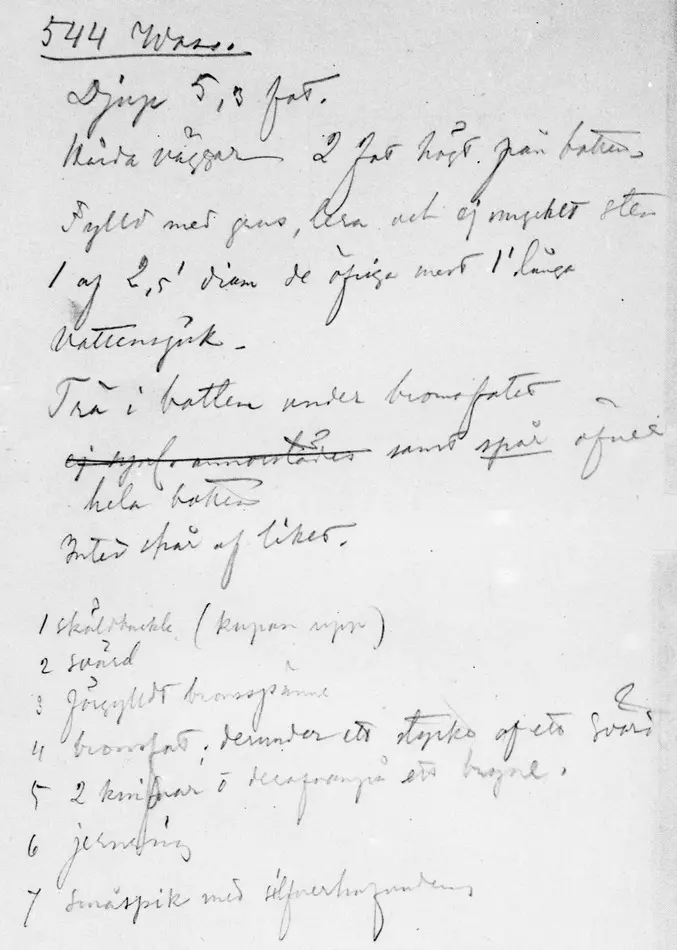 544
Djup 5,3 fot.
Hårda väggar 2 fot högt från botten
Fylld med grus, lera och ej mycket sten
1 af 2,5' diam de öfriga mest 1' långa
Vattensjuk –
Trä i botten under bronsfatet
samt spår öfver
hela botten
Intet spår af liket.
1 sköldbuckla (kupan upp)
2 svärd
3 förgylldt bronsspänne
4 bronsfat, derunder ett stycke af ett svärd
5 2 knifvar o derofvanpå ett bryne.
6 jernring
7 småspik med silfverhufvuden